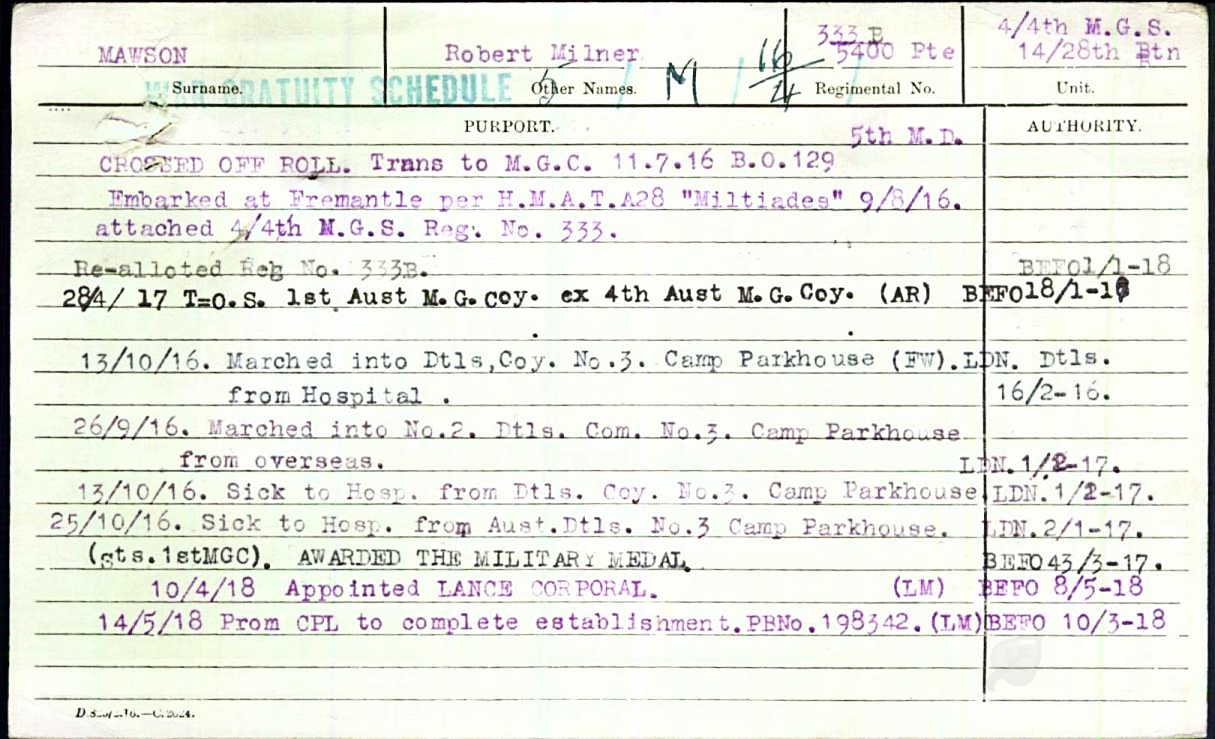 MAWSON Robert Milner 333 B 5400 Pte 4/4th M.G.S. 14/28th Btn
Surname. Other Names. Regimental No. Unit.
WAR GRATUITY SCHEDULE 5 M 16/4
PURPORT. AUTHORITY.
5th M.D.
CROSSED OFF ROLL. Trans to M.G.C. 11.7.16 B.O.129
Embarked at Fremantle per H.M.A.T.A28 "Miltiades" 9/8/16.
attached 4/4th M.G.S. Reg. No. 333.
Re-alloted Reg No. 333B. BEFO1/1-18
T=O.S. 1st Aust M.G.Coy. ex 4th Aust M.G.Coy. (AR)
13/10/16. Marched into Dtls,Coy. No.3. Camp Parkhouse (FW). LDN. Dtls.
from Hospital . 16/2-16.
26/9/16. Marched into No.2. Dtls. Com. No.3. Camp Parkhouse
from overseas. LDN.1/2-17.
13/10/16. Sick to Hosp. from Dtls. Coy. No.3. Camp Parkhouse LDN.1/2-17.
25/10/16. Sick to Hosp. from Aust.Dtls. No.3 Camp Parkhouse. LDN.2/1-17.
(sts.1stMGC). AWARDED THE MILITARY MEDAL. BEFO43/3-17.
10/4/18 Appointed LANCE CORPORAL. (LM) BEFO 8/5-18
14/5/18 Prom CPL to complete establishment.PBNo.198342.(LM) BEFO 10/3-18